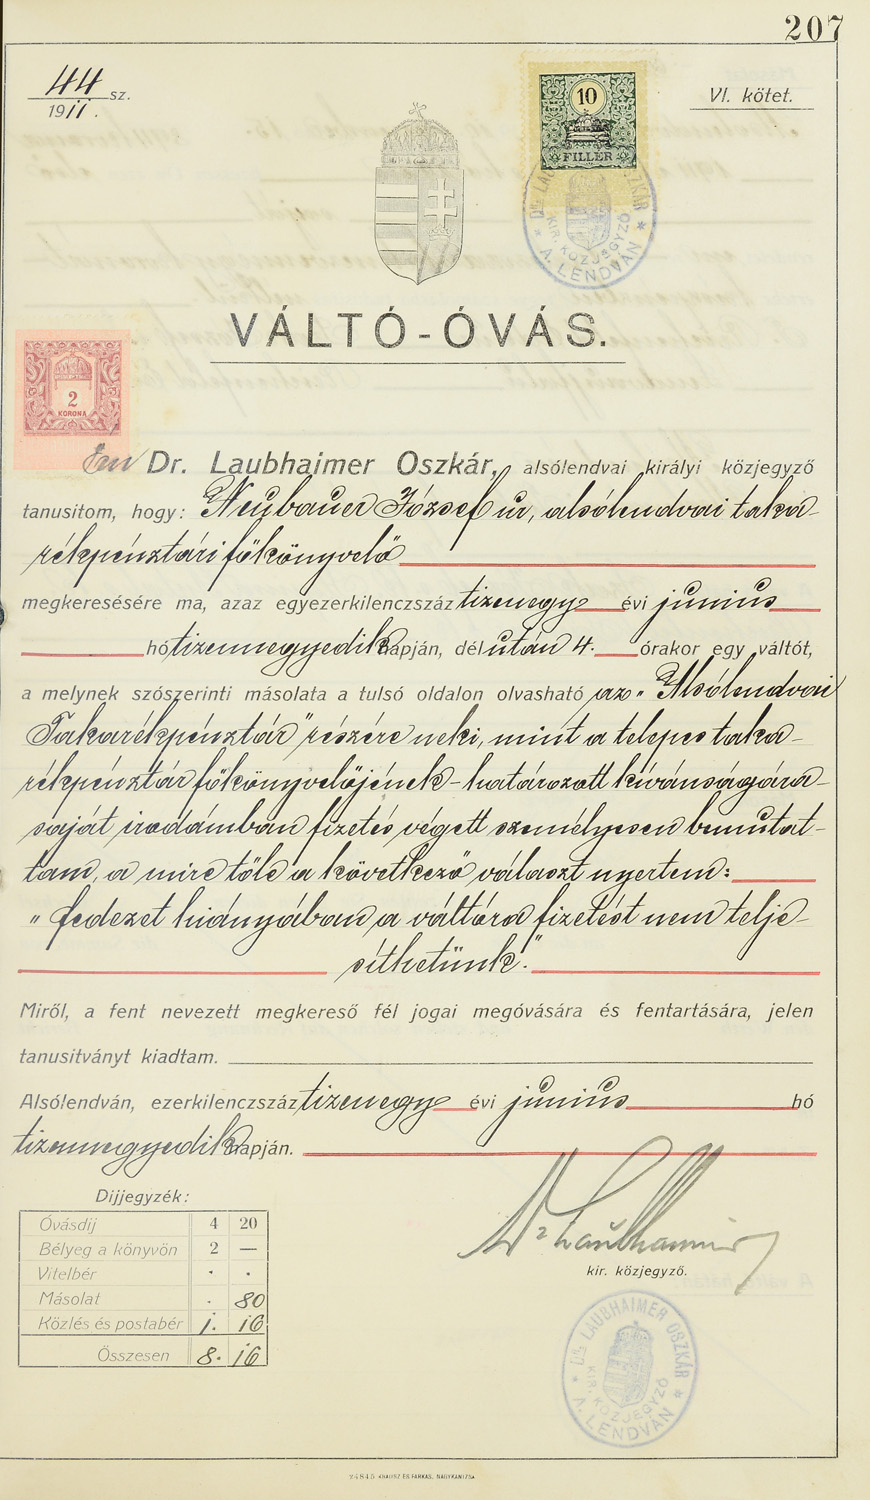 207
44 sz.
1911.
VI. kötet.
10
FILLÉR
Dr. LAUBHAIMER OSZKÁR
KIR. KÖZJEGYZŐ
A. LENDVÁN
VÁLTÓ-ÓVÁS.
2
KORONA
Én Dr. Laubhaimer Oszkár, alsólendvai királyi közjegyző
tanusitom, hogy: Neubauer József ur, alsólendvai taka-
rékpénztári főkönyvelő
megkeresésére ma, azaz egyezerkilenczszáz tizenegy évi junius
hó tizennegyedik napján, dél után 4. órakor egy váltót,
a melynek szószerinti másolata a tulsó oldalon olvasható az „Alsólendvai
Takarékpénztár" részére neki, mint a telepes taka-
rékpénztár főkönyvelőjének - határozott kívánságára -
saját irodámban fizetés végett személyesen bemutat-
tam, a mire tőle a következő választ nyertem:
„fedezet hiányában a váltóra fizetést nem telje-
síthetünk."
Miről, a fent nevezett megkereső fél jogai megóvására és fentartására, jelen
tanusitványt kiadtam.
Alsólendván, ezerkilenczszáz tizenegy évi junius hó
tizennegyedik napján.
Dijjegyzék:
Óvásdij 4 20
Bélyeg a könyvön 2 —
Vitelbér . .
Másolat . 80
Közlés és postabér 1. 16
Összesen 8. 16
Dr Laubhaimer
kir. közjegyző.
Dr. LAUBHAIMER OSZKÁR
KIR. KÖZJEGYZŐ
A. LENDVÁN
24845 KRAUSZ ÉS FARKAS, NAGYKANIZSA